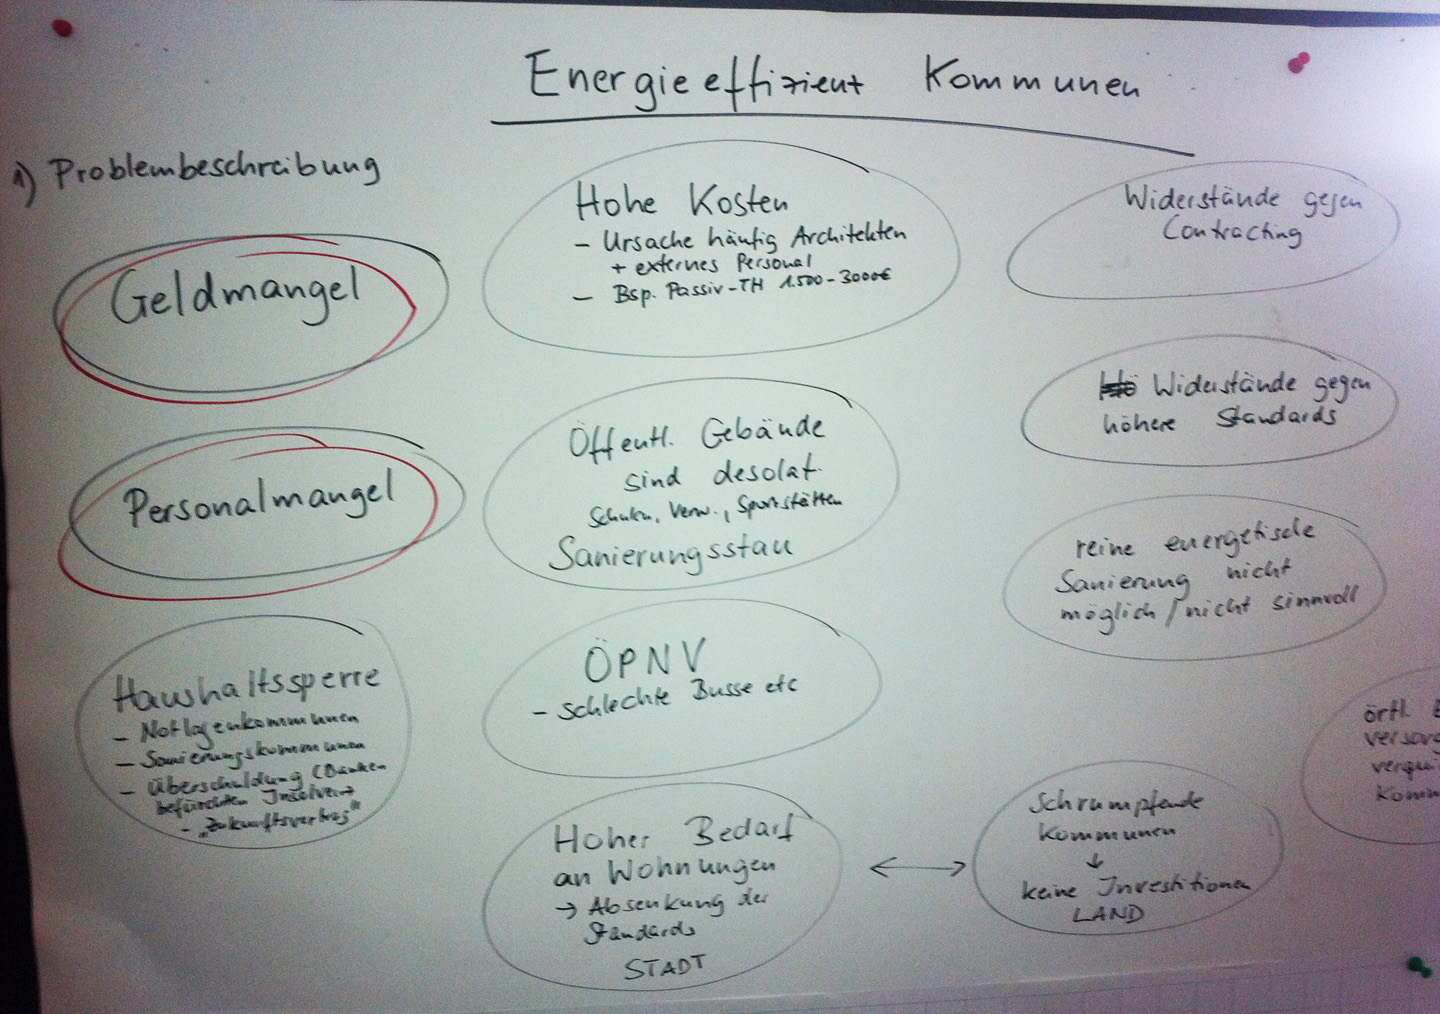 Energieeffizient Kommunen
1) Problembeschreibung
Geldmangel
Personalmangel
Haushaltssperre
- Notlagenkommunen
- Sanierungskommunen
- Überschuldung (Banken
befürchten Insolvenz
- „Zukunftsvertrag"
Hohe Kosten
- Ursache häufig Architekten
+ externes Personal
- Bsp. Passiv-TH 1.500-3000€
Öffentl. Gebäude
sind desolat.
Schulen, Verw., Sportstätten
Sanierungsstau
ÖPNV
- schlechte Busse etc
Hoher Bedarf
an Wohnungen
→ Absenkung der
Standards
STADT
Widerstände gegen
Contracting
Widerstände gegen
höhere Standards
reine energetische
Sanierung nicht
möglich / nicht sinnvoll
Schrumpfende
Kommunen
↓
keine Investitionen
LAND
örtl.